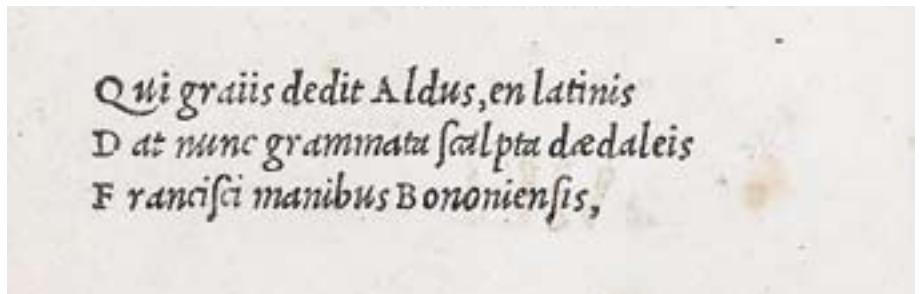 Qui graiis dedit Aldus, en latinis
D at nunc grammata ſcalpta dædaleis
F ranciſci manibus Bononienſis,